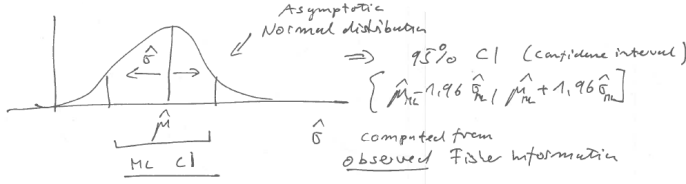 Asymptotic
Normal distribution
σ̂
⇒ 95% CI (confidence interval)
[μ̂ML - 1,96 σ̂ML, μ̂ML + 1,96 σ̂ML]
μ̂
ML CI
σ̂ computed from
observed Fisher Information